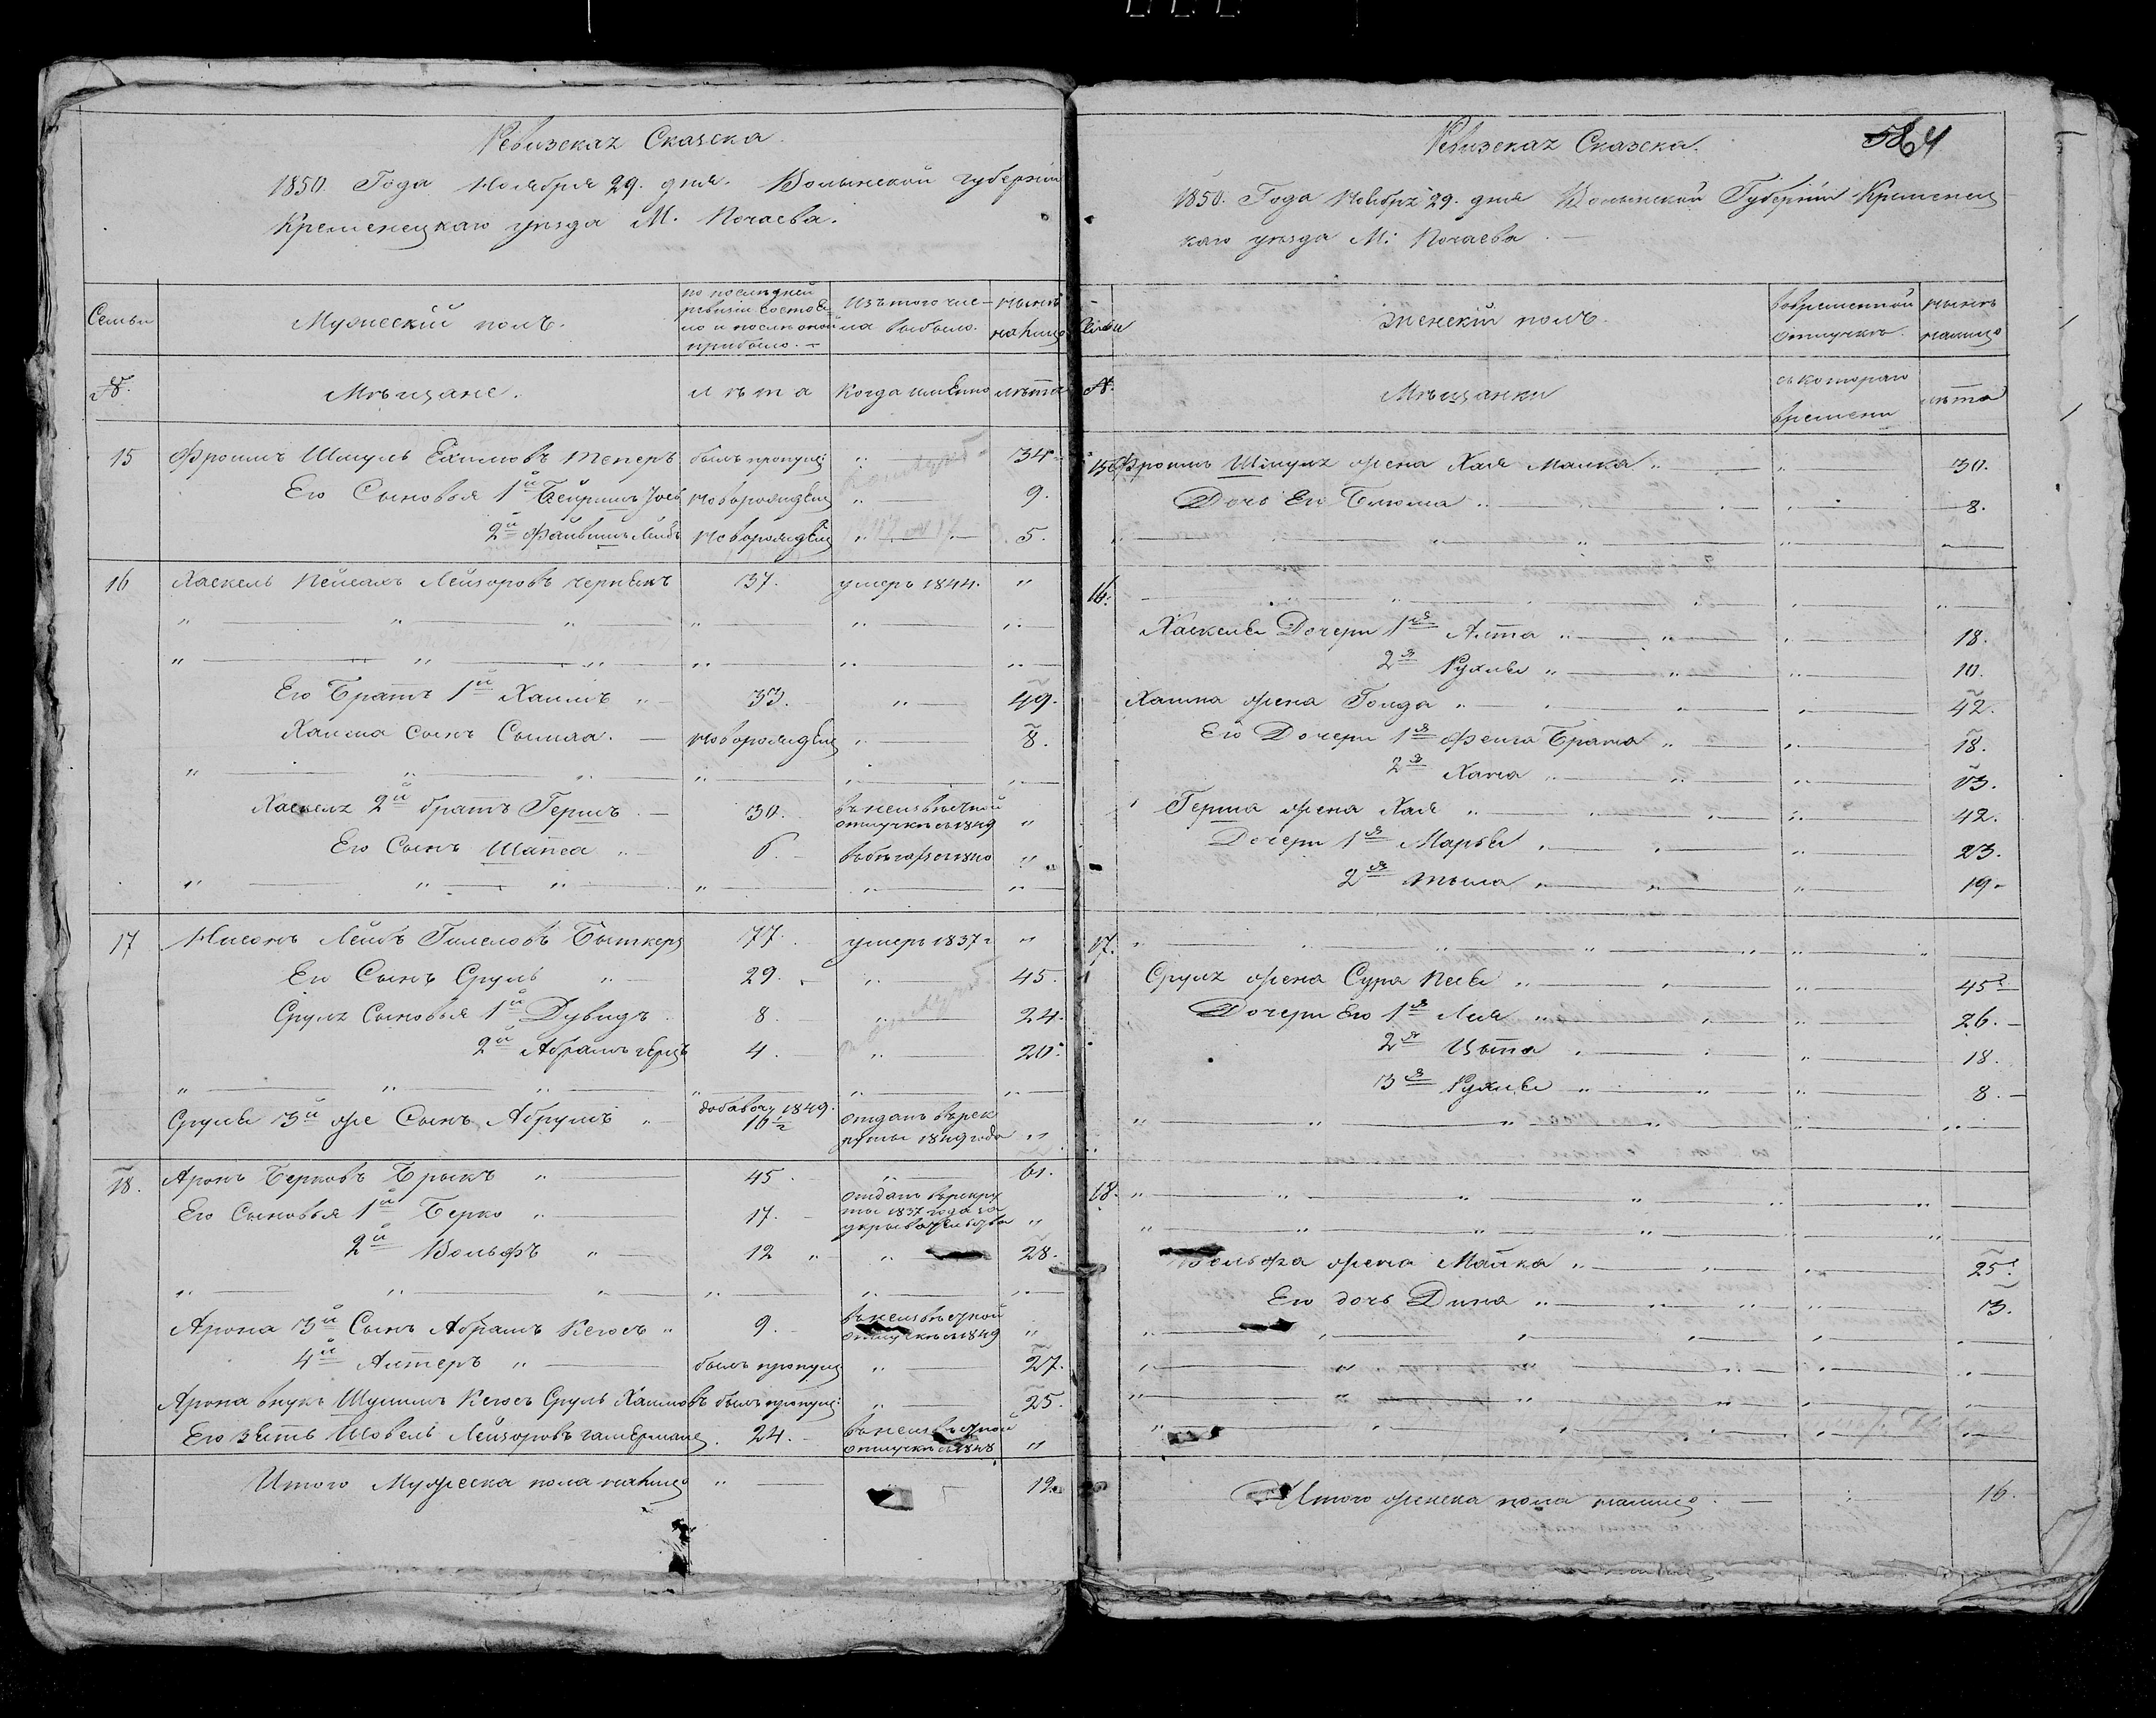 Ревизская Сказска.
1850. Года Ноября 29. дня. Волынской губерніи
Кременецкаго уѣзда М. Почаева.
Семьи
Мужескій полъ.
по послѣдней ревизіи состояло и послѣ оной прибыло.
Изъ того числа выбыло.
Нынѣ на лицо
№.
Мѣщане.
лѣта
Когда именно
лѣта
15 Фроимъ Шмуль Ехимовъ Теперъ былъ пропущ: „ 34.
Его Сыновья 1й Бейришъ Іось новорожден „ 9.
2й Файвишъ Лейбъ новорожден „ 5.
16 Хаскель Пейсахъ Лейзоровъ 37. умеръ 1844. „
Его Братъ 1й Хаимъ „ 33. „ 49.
Хаима сынъ Сымха. новорожден „ 8.
Хаскеля 2й братъ Гершъ. 30. въ неизвѣстной отлучкѣ съ 1849 „
Его Сынъ Шапса „ 6. „
17 Нисонъ Лейбъ Гилеловъ 77. умеръ 1837 г „
Его Сынъ Сруль „ 29. „ 45.
Сруля Сыновья 1й Дувидъ 8. „ 24.
2й Абрамъ Герцъ 4. „ 20.
Сруля 3й же Сынъ Абрумъ „ добавоч 1849. 16½ отданъ в рекруты 1849 года „
18. Аронъ Берковъ Брыкъ „ 45. „ 61.
Его Сыновья 1й Берко „ 17. отданъ в рекруты 1837 года за укрывательство „
2й Вольфъ „ 12 „ „ 28.
Арона 3й Сынъ Абрамъ Кегосъ „ 9. въ неизвѣстной отлучкѣ съ 1849 „
4й Алтеръ „ былъ пропущ „ 27.
Арона внукъ Шулимъ Кегосъ Сруль Хаимовъ былъ пропущ: „ 25.
Его зять Шовель Лейзоровъ 24. въ неизвѣстной отлучкѣ съ 1848 „
Итого Мужеска пола на лицо „ 12.
Ревизская Сказска.
564
1850. Года Ноября 29. дня Волынской Губерніи Кременец
каго уѣзда М. Почаева
Семьи
Женскій полъ.
Во временной отлучкѣ.
Нынѣ на лицо
№.
Мѣщанки
съ котораго времени
лѣта
15 Фроимъ Шмуля жена Хая Малка „ „ 30.
Дочь Его Блюма „ „ 8.
16. „
Хаскеля Дочери 1я Алта „ „ 18.
2я Рухля „ „ 10.
Хаима жена Голда „ „ 42.
Его Дочери 1я Фейга Брана „ „ 18.
2я Хана „ „ 13.
Герша жена Хая „ „ 42.
Дочери 1я Марья „ „ 23.
2я „ „ 19.
17. „
Сруля жена Сура Песя „ „ 45.
Дочери Его 1я Лея „ „ 26.
2я Цыпа „ „ 18.
3я Рухля „ „ 8.
18. „
Вольфа жена Малка „ „ 25.
Его дочь Дина „ „ 3.
Итого женска пола на лицо. 16.